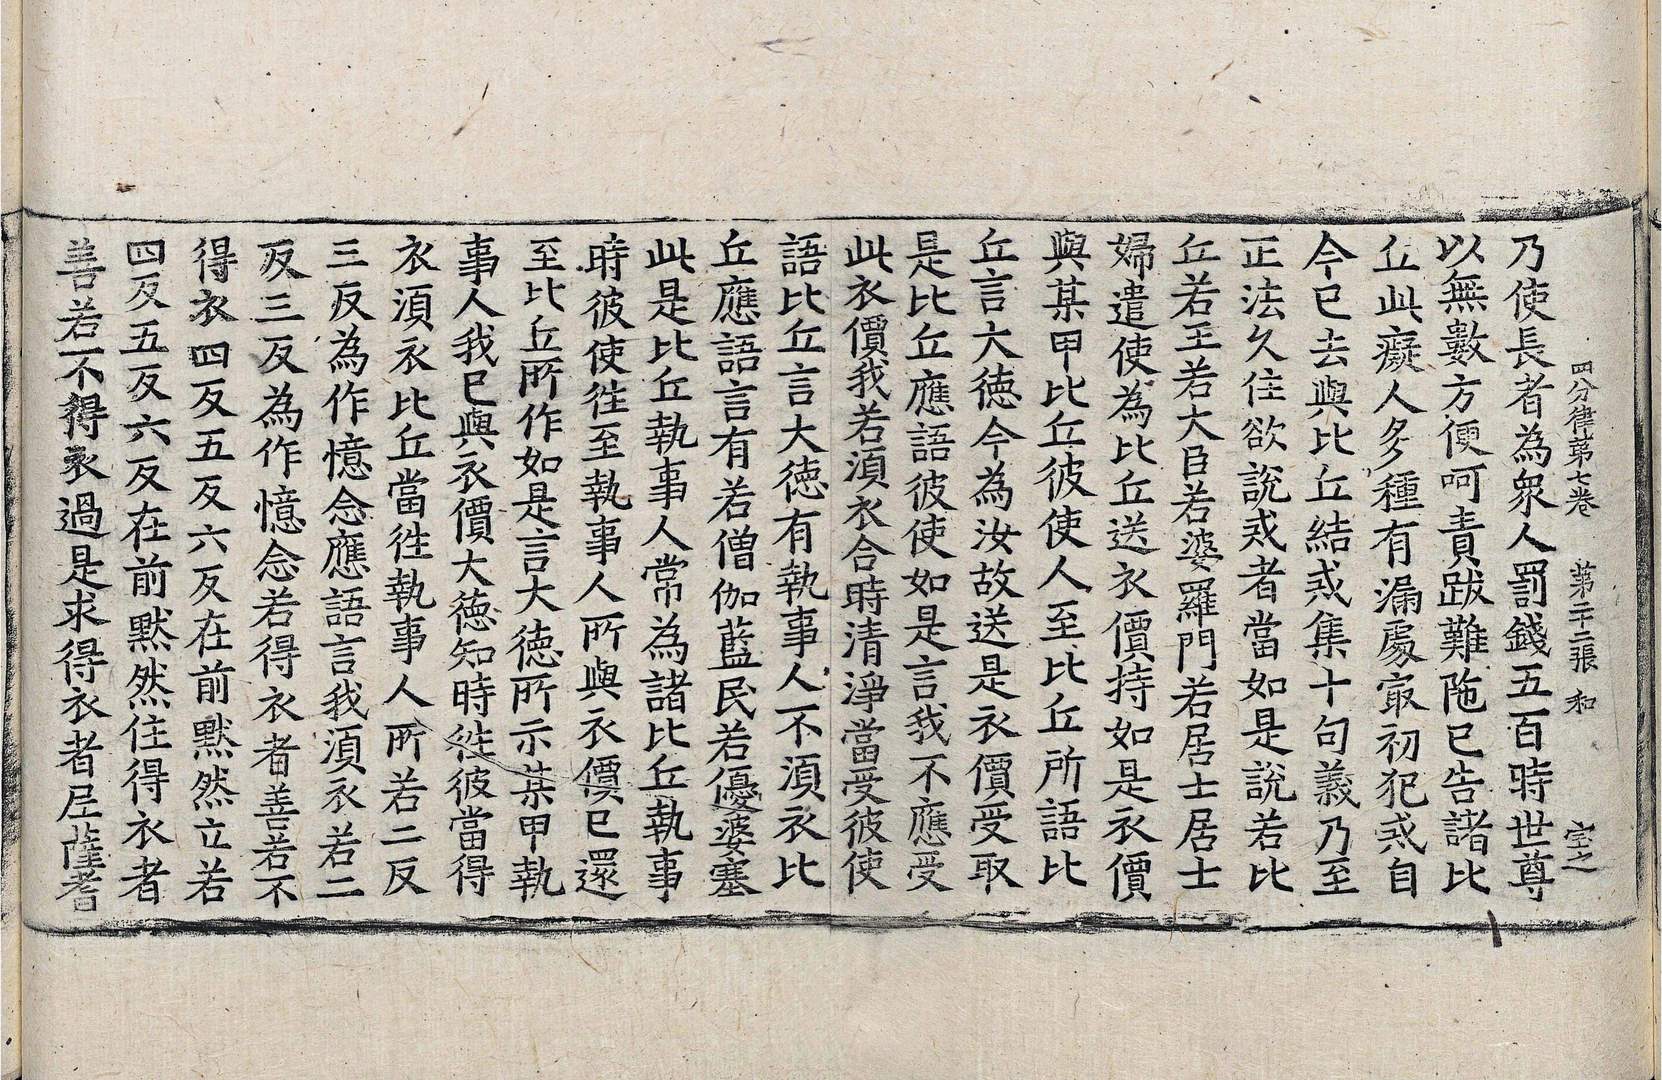 四分律第七卷 第二十二張 和 宝之
乃使長者為衆人罰錢五百時世尊
以無數方便呵責跋難陁已告諸比
丘此癡人多種有漏處㝡初犯戒自
今已去與比丘結戒集十句義乃至
正法久住欲說戒者當如是說若比
丘若王若大臣若婆羅門若居士居士
婦遣使為比丘送衣價持如是衣價
與某甲比丘彼使人至比丘所語比
丘言大德今為汝故送是衣價受取
是比丘應語彼使如是言我不應受
此衣價我若須衣合時清淨當受彼使
語比丘言大德有執事人不須衣比
丘應語言有若僧伽藍民若優婆塞
此是比丘執事人常為諸比丘執事
時彼使徃至執事人所與衣價已還
至比丘所作如是言大德所示某甲執
事人我已與衣價大德知時徃彼當得
衣須衣比丘當徃執事人所若二反
三反為作憶念應語言我須衣若二
反三反為作憶念若得衣者善若不
得衣四反五反六反在前默然立若
四反五反六反在前默然住得衣者
善若不得衣過是求得衣者尼薩耆